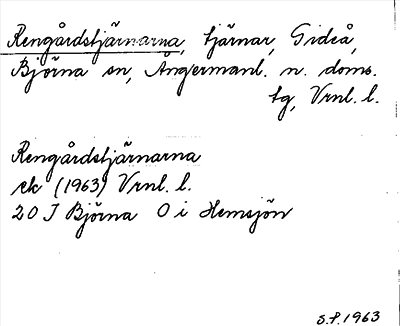 Rengårdstjärnarna, tjärnar, Gideå,
Björna sn, Ångermanl. n. doms.
tg, Vrnl. l.
Rengårdstjärnarna
ek (1963) Vrnl. l.
20 J Björna O i Hemsjön
S.P. 1963